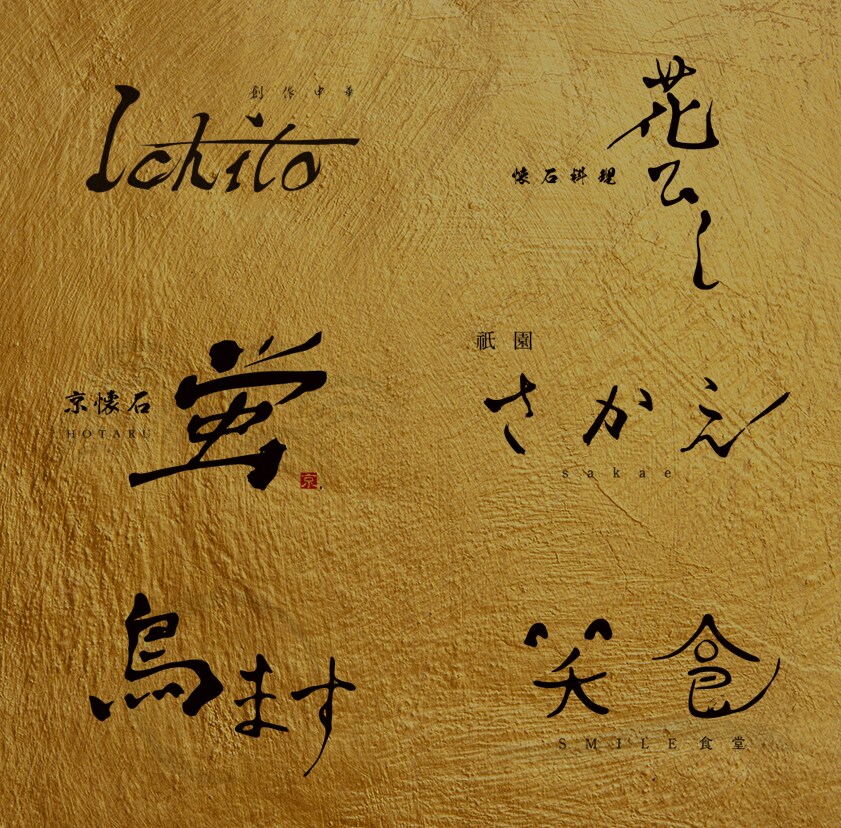 創作中華
Ichito
花むし
懐石料理
京懐石
HOTARU
蛍
京
祇園
さかえ
sakae
鳥ます
笑食
SMILE食堂